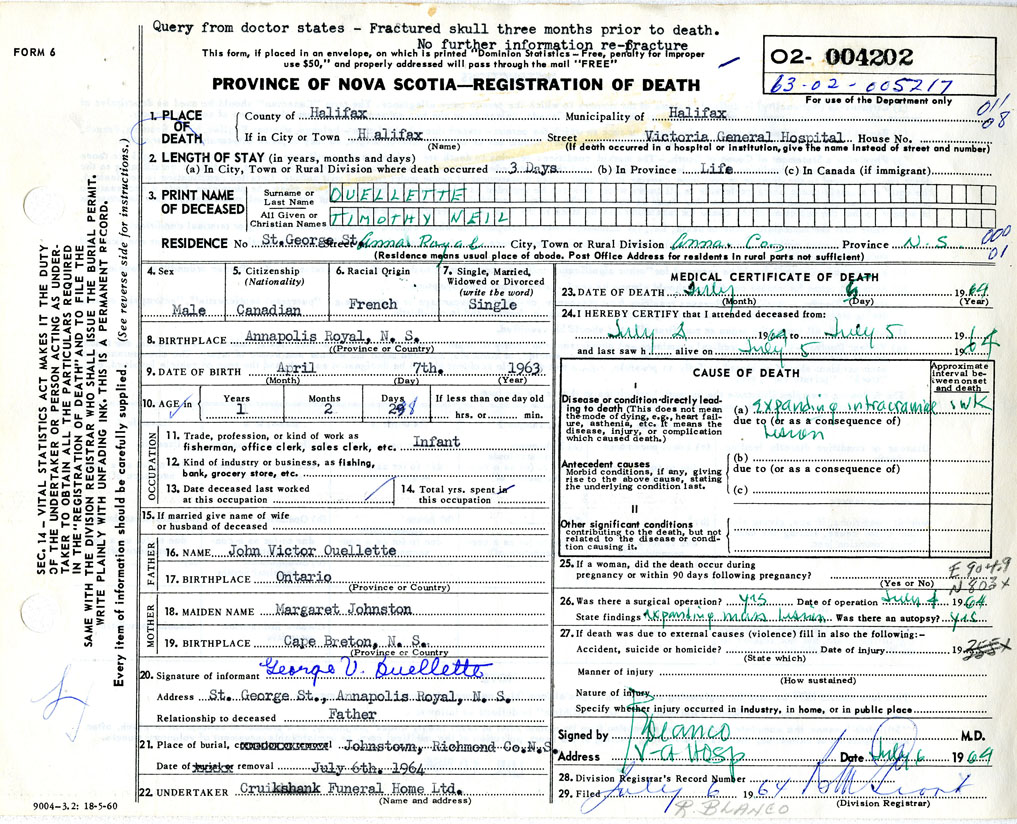 Query from doctor states - Fractured skull three months prior to death.
No further information re-fracture
FORM 6
This form, if placed in an envelope, on which is printed "Dominion Statistics - Free, penalty for improper
use $50," and properly addressed will pass through the mail "FREE"
02- 004202
63-02-005217
For use of the Department only
PROVINCE OF NOVA SCOTIA—REGISTRATION OF DEATH
011
08
1. PLACE OF DEATH
County of Halifax Municipality of Halifax
If in City or Town Halifax Street Victoria General Hospital House No.
(Name) (If death occurred in a hospital or institution, give the name instead of street and number)
2. LENGTH OF STAY (in years, months and days)
(a) In City, Town or Rural Division where death occurred 3 Days (b) In Province Life (c) In Canada (if immigrant)
3. PRINT NAME OF DECEASED
Surname or Last Name OUELLETTE
All Given or Christian Names TIMOTHY NEIL
RESIDENCE No St. George St. Street Anna Royal City, Town or Rural Division Anna. Co. Province N.S.
000
01
(Residence means usual place of abode. Post Office Address for residents in rural parts not sufficient)
4. Sex
Male
5. Citizenship
(Nationality)
Canadian
6. Racial Origin
French
7. Single, Married,
Widowed or Divorced
(write the word)
Single
8. BIRTHPLACE Annapolis Royal, N. S.
(Province or Country)
9. DATE OF BIRTH April 7th. 1963
(Month) (Day) (Year)
10. AGE in
Years 1
Months 2
Days 29 28
If less than one day old
hrs. or min.
OCCUPATION
11. Trade, profession, or kind of work as
fisherman, office clerk, sales clerk, etc. Infant
12. Kind of industry or business, as fishing,
bank, grocery store, etc.
13. Date deceased last worked
at this occupation
14. Total yrs. spent in
this occupation
15. If married give name of wife
or husband of deceased
FATHER
16. NAME John Victor Ouellette
17. BIRTHPLACE Ontario
(Province or Country)
MOTHER
18. MAIDEN NAME Margaret Johnston
19. BIRTHPLACE Cape Breton, N. S.
(Province or Country)
20. Signature of informant George V. Ouellette
Address St. George St., Annapolis Royal, N. S.
Relationship to deceased Father
21. Place of burial, Johnstown, Richmond Co. N.S.
Date of burial or removal July 6th. 1964
22. UNDERTAKER Cruikshank Funeral Home Ltd.
(Name and address)
MEDICAL CERTIFICATE OF DEATH
23. DATE OF DEATH July 6 1964
(Month) (Day) (Year)
24. I HEREBY CERTIFY that I attended deceased from:
July 2 1964 to July 5 1964
and last saw h alive on July 5 1964
CAUSE OF DEATH
Approximate
interval be-
tween onset
and death
I
Disease or condition directly lead-
ing to death (This does not mean
the mode of dying, e.g., heart fail-
ure, asthenia, etc. It means the
disease, injury, or complication
which caused death.)
(a) expanding intracranial 1wk
due to (or as a consequence of)
lesion
Antecedent causes
Morbid conditions, if any, giving
rise to the above cause, stating
the underlying condition last.
(b)
due to (or as a consequence of)
(c)
II
Other significant conditions
contributing to the death, but not
related to the disease or condi-
tion causing it.
25. If a woman, did the death occur during
pregnancy or within 90 days following pregnancy?
(Yes or No)
E 904.9
N 803x
26. Was there a surgical operation? yes Date of operation July 4 1964
State findings expanding mass lesion Was there an autopsy? yes
27. If death was due to external causes (violence) fill in also the following:-
Accident, suicide or homicide? Date of injury 19
(State which)
Manner of injury
(How sustained)
Nature of injury
Specify whether injury occurred in industry, in home, or in public place
Signed by R Blanco M.D.
Address V-G Hosp Date July 6 1964
28. Division Registrar's Record Number
29. Filed July 6 1964
(Division Registrar)
R. BLANCO
9004-3.2: 18-5-60
SEC. 14 - VITAL STATISTICS ACT MAKES IT THE DUTY
OF THE UNDERTAKER OR PERSON ACTING AS UNDER-
TAKER TO OBTAIN ALL THE PARTICULARS REQUIRED
IN THE "REGISTRATION OF DEATH" AND TO FILE THE
SAME WITH THE DIVISION REGISTRAR WHO SHALL ISSUE THE BURIAL PERMIT.
WRITE PLAINLY WITH UNFADING INK. THIS IS A PERMANENT RECORD.
Every item of information should be carefully supplied. (See reverse side for instructions.)